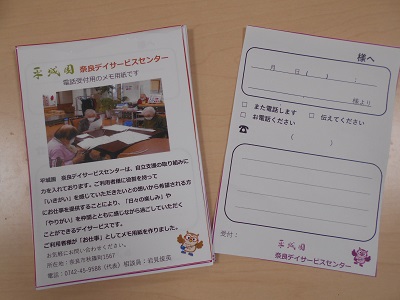 平城園 奈良デイサービスセンター
電話受付用のメモ用紙です
平城園 奈良デイサービスセンターは、自立支援の取り組みに
力を入れております。ご利用者様に役割を持って
「いきがい」を感じていただきたいとの想いから希望される方
にお仕事を提供することにより、「日々の楽しみ」や
「やりがい」を仲間とともに感じながら過ごしていただく
ことができるデイサービスです。
ご利用者様が「お仕事」としてメモ用紙を作りました。
お気軽にお問い合わせください。
所在地：奈良市秋篠町1567
電話：0742-45-9588（代表）相談員：
様へ
月 日（ ） ：
様より
□ また電話します □ 伝えてください
□ お電話ください
☎ （ ）
受付：
平城園
奈良デイサービスセンター